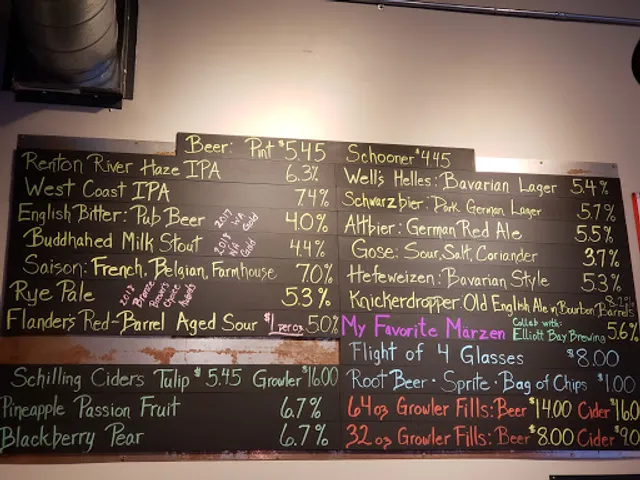 Beer: Pint $5.45 Schooner $4.45
Renton River Haze IPA 6.3%
West Coast IPA 7.4%
English Bitter: Pub Beer 2017 WA Gold 4.0%
Buddhahed Milk Stout 2018 NA Gold 4.4%
Saison: French, Belgian, Farmhouse 7.0%
Rye Pale 2017 Bronze Brewers Choice Awards 5.3%
Flander's Red-Barrel Aged Sour $1 per oz 5.0%
Well's Helles: Bavarian Lager 5.4%
Schwarzbier: Dark German Lager 5.7%
Altbier: German Red Ale 5.5%
Gose: Sour, Salt, Coriander 3.7%
Hefeweizen: Bavarian Style 5.3%
Knickerdropper: Old English Ale in Bourbon Barrels 8.2%
My Favorite Märzen Collab with: Elliott Bay Brewing 5.6%
Flight of 4 Glasses $8.00
Root Beer · Sprite · Bag of Chips $1.00
64oz Growler Fills: Beer $14.00 Cider $16.0
32 oz Growler Fills: Beer $8.00 Cider $9.0
Schilling Ciders Tulip $5.45 Growler $16.00
Pineapple Passion Fruit 6.7%
Blackberry Pear 6.7%